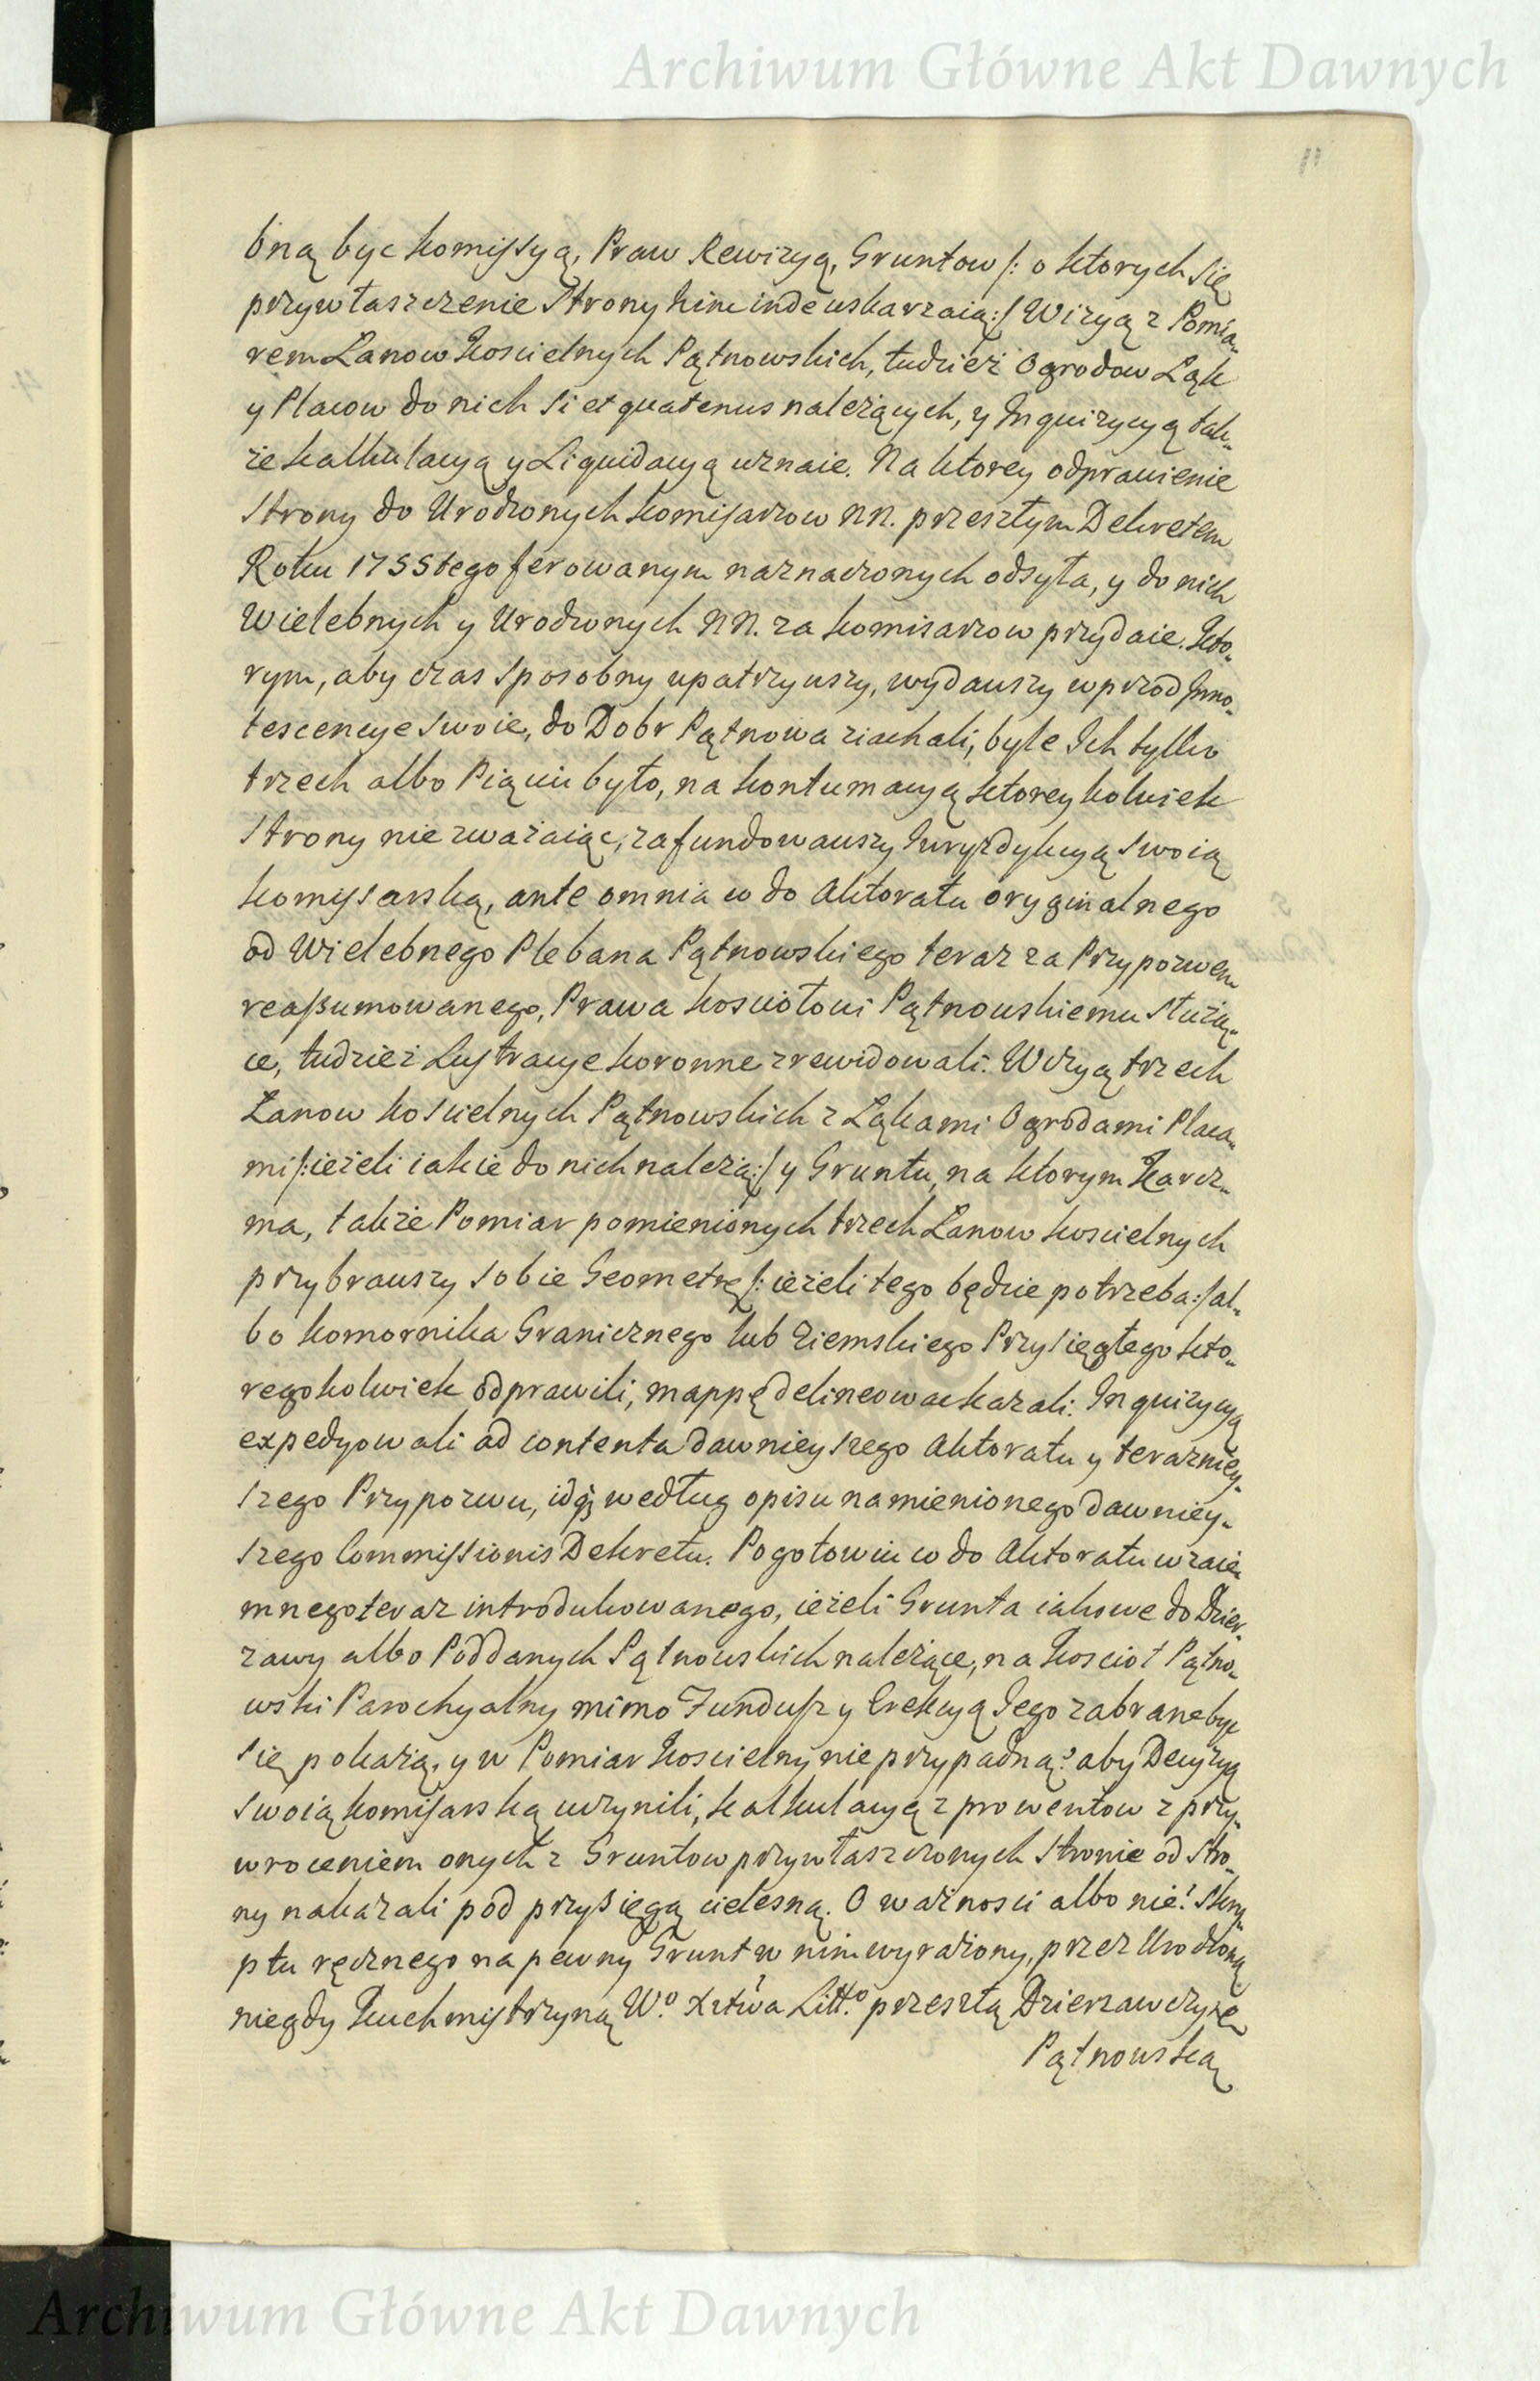 Archiwum Główne Akt Dawnych
11
bną byc Komissyą, Praw Rewizyą, Gruntow /: o ktorych się
przywłaszczenie Strony hinc inde uskarzaią :/ Wizyą z Pomia-
rem Łanow Koscielnych Pątnowskich, tudzież Ogrodow Łąk
y Placow do nich si et quatenus należących, y Inquizycyą tak-
że kalkulacyą y Liquidacyą uznaie. Na ktorey odprawienie
Strony do Urodzonych Komisarzow NN. przeszłym Dekretem
Roku 1755tego ferowanym naznaczonych odsyła, y do nich
Wielebnych y Urodzonych NN. za Komisarzow przydaie. Kto-
rym, aby czas sposobny upatrzywszy, wydawszy wprzod Inno-
tescencye swoie, do Dobr Pątnowa ziachali, byle Ich tylko
trzech albo Piąciu było, na kontumacyą ktorey kolwiek
Strony nie zważaiąc, zafundowawszy Juryzdykcyą swoią
Komyssarską, ante omnia co do Aktoratu oryginalnego
od Wielebnego Plebana Pątnowskiego teraz za Przypozwem
reassumowanego, Prawa Kosciołowi Pątnowskiemu służą-
ce, tudzież Lustracye Koronne zrewidowali. Wizyą trzech
Łanow Koscielnych Pątnowskich z Łąkami Ogrodami Placa-
mi /: ieżeli iakie do nich należą :/ y Gruntu, na ktorym Karcz-
ma, także Pomiar pomienionych trzech Łanow Koscielnych
przybrawszy sobie Geometrę /: ieżeli tego będzie potrzeba :/ al-
bo Komornika Granicznego lub Ziemskiego Przysięgłego kto-
regokolwiek odprawili, mappę delineowac kazali. Inquizycyą
expedyowali ad contenta dawnieyszego Aktoratu y teraznieŷ-
szego Przypozwu, idąc według opisu namienionego dawniey-
szego Commissionis Dekretu. Pogotowiu co do Aktoratu wzaie-
mnego teraz introdukowanego, ieżeli Grunta iakowe do Dzier-
zawy albo Poddanych Pątnowskich należące, na Koscioł Pątno-
wski Parochyalny mimo Fundusz y Erekcyą Jego zabrane byc
się pokażą, y w Pomiar Koscielny nie przypadną? aby Decyzyą
swoią Komisarską uczynili, kalkulacyą z prowentow z przy-
wroceniem onych z Gruntow przywłaszczonych Stronie od Stro-
ny nakazali pod przysięgą cielesną. O ważnosci albo nie! Skry-
ptu ręcznego na pewny Grunt w nim wyrażony, przez Urodzoną
niegdy Kuchmistrzyną W.º Xtwa Litt.º przeszłą Dzierzawczynę
Pątnowską
Archiwum Główne Akt Dawnych